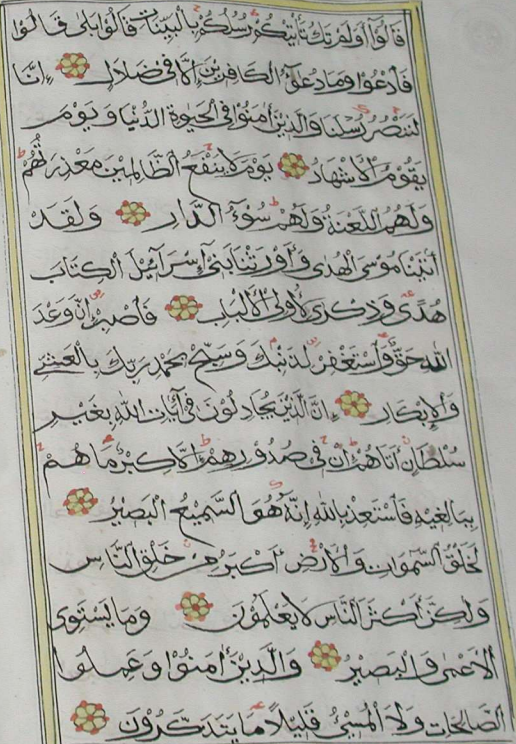 قَالُوٓا۟ أَوَلَمْ تَكُ تَأْتِيكُمْ رُسُلُكُمْ بِالْبَيِّنَاتِ قَالُوا بَلَىٰ قَالُوا
فَادْعُوا وَمَا دُعَٰٓؤُا الْكَافِرِينَ إِلَّا فِى ضَلَالٍ إِنَّا
لَنَنْصُرُ رُسُلَنَا وَالَّذِينَ آمَنُوا فِى الْحَيَوٰةِ الدُّنْيَا وَيَوْمَ
يَقُومُ الْأَشْهَادُ يَوْمَ لَا يَنْفَعُ الظَّالِمِينَ مَعْذِرَتُهُمْ
وَلَهُمُ اللَّعْنَةُ وَلَهُمْ سُوٓءُ الدَّارِ وَلَقَدْ
آتَيْنَا مُوسَى الْهُدَى وَأَوْرَثْنَا بَنِىٓ إِسْرَآئِيلَ الْكِتَابَ
هُدًى وَذِكْرَى لِأُولِى الْأَلْبَابِ فَاصْبِرْ إِنَّ وَعْدَ
اللَّهِ حَقٌّ وَاسْتَغْفِرْ لِذَنْبِكَ وَسَبِّحْ بِحَمْدِ رَبِّكَ بِالْعَشِيِّ
وَالْإِبْكَارِ إِنَّ الَّذِينَ يُجَادِلُونَ فِىٓ آيَاتِ اللَّهِ بِغَيْرِ
سُلْطَانٍ أَتَاهُمْ إِنْ فِى صُدُورِهِمْ إِلَّا كِبْرٌ مَا هُمْ
بِبَالِغِيهِ فَاسْتَعِذْ بِاللَّهِ إِنَّهُ هُوَ السَّمِيعُ الْبَصِيرُ
لَخَلْقُ السَّمٰوَاتِ وَالْأَرْضِ أَكْبَرُ مِنْ خَلْقِ النَّاسِ
وَلَكِنَّ أَكْثَرَ النَّاسِ لَا يَعْلَمُونَ وَمَا يَسْتَوِى
الْأَعْمَى وَالْبَصِيرُ وَالَّذِينَ آمَنُوا وَعَمِلُوا
الصَّالِحَاتِ وَلَا الْمُسِىٓءُ قَلِيلًا مَا يَتَذَكَّرُونَ